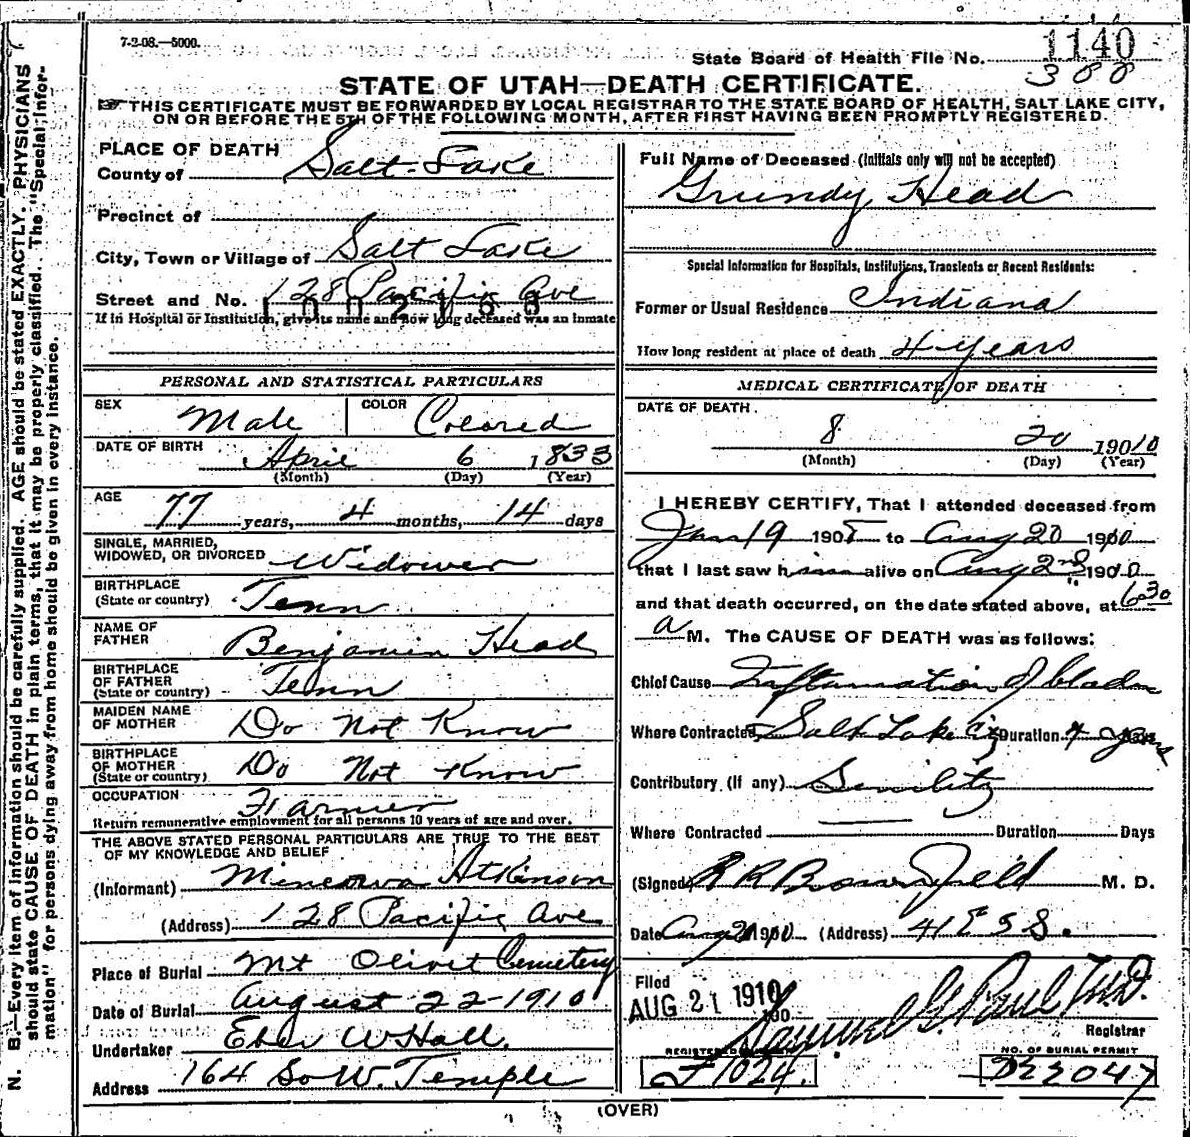 7-2-08.—5000.
State Board of Health File No. 1140
388
STATE OF UTAH—DEATH CERTIFICATE.
THIS CERTIFICATE MUST BE FORWARDED BY LOCAL REGISTRAR TO THE STATE BOARD OF HEALTH, SALT LAKE CITY,
ON OR BEFORE THE 5TH OF THE FOLLOWING MONTH, AFTER FIRST HAVING BEEN PROMPTLY REGISTERED.
N. B.—Every item of information should be carefully supplied. AGE should be stated EXACTLY. PHYSICIANS
should state CAUSE OF DEATH in plain terms, that it may be properly classified. The "Special Infor-
mation" for persons dying away from home should be given in every instance.
PLACE OF DEATH
County of Salt Lake
Precinct of
City, Town or Village of Salt Lake
Street and No. 128 Pacific Ave
If in Hospital or Institution, give its name and how long deceased was an inmate
PERSONAL AND STATISTICAL PARTICULARS
SEX Male COLOR Colored
DATE OF BIRTH April 6 1833
(Month) (Day) (Year)
AGE 77 years, 4 months, 14 days
SINGLE, MARRIED,
WIDOWED, OR DIVORCED Widower
BIRTHPLACE
(State or country) Tenn
NAME OF
FATHER Benjamin Head
BIRTHPLACE
OF FATHER
(State or country) Tenn
MAIDEN NAME
OF MOTHER Do Not Know
BIRTHPLACE
OF MOTHER
(State or country) Do Not Know
OCCUPATION Farmer
Return remunerative employment for all persons 10 years of age and over.
THE ABOVE STATED PERSONAL PARTICULARS ARE TRUE TO THE BEST
OF MY KNOWLEDGE AND BELIEF
(Informant) Minerva Atkinson
(Address) 128 Pacific Ave
Place of Burial Mt Olivit Cemetery
Date of Burial August 22-1910
Undertaker Eber W Hall.
Address 164 So W. Temple
Full Name of Deceased (Initials only will not be accepted)
Grundy Head
Special Information for Hospitals, Institutions, Transients or Recent Residents:
Former or Usual Residence Indiana
How long resident at place of death 4 years
MEDICAL CERTIFICATE OF DEATH
DATE OF DEATH.
8 20 1910
(Month) (Day) (Year)
I HEREBY CERTIFY, That I attended deceased from
Jan 19 190 to Aug 20 1910
that I last saw him alive on Aug 2nd 1910
and that death occurred, on the date stated above, at 6:30
a M. The CAUSE OF DEATH was as follows:
Chief Cause Inflamation of bladder
Where Contracted Salt Lake City Duration 4 years
Contributory (if any) Senility
Where Contracted Duration Days
(Signed) R R Brownfield M. D.
Date Aug 20 1910 (Address) 41 E 3 S.
Filed
AUG 21 1910 190
Samuel G. Paul, M.D.
Registrar
REGISTERED NO. OF BURIAL PERMIT
F 1024. D22047
(OVER)